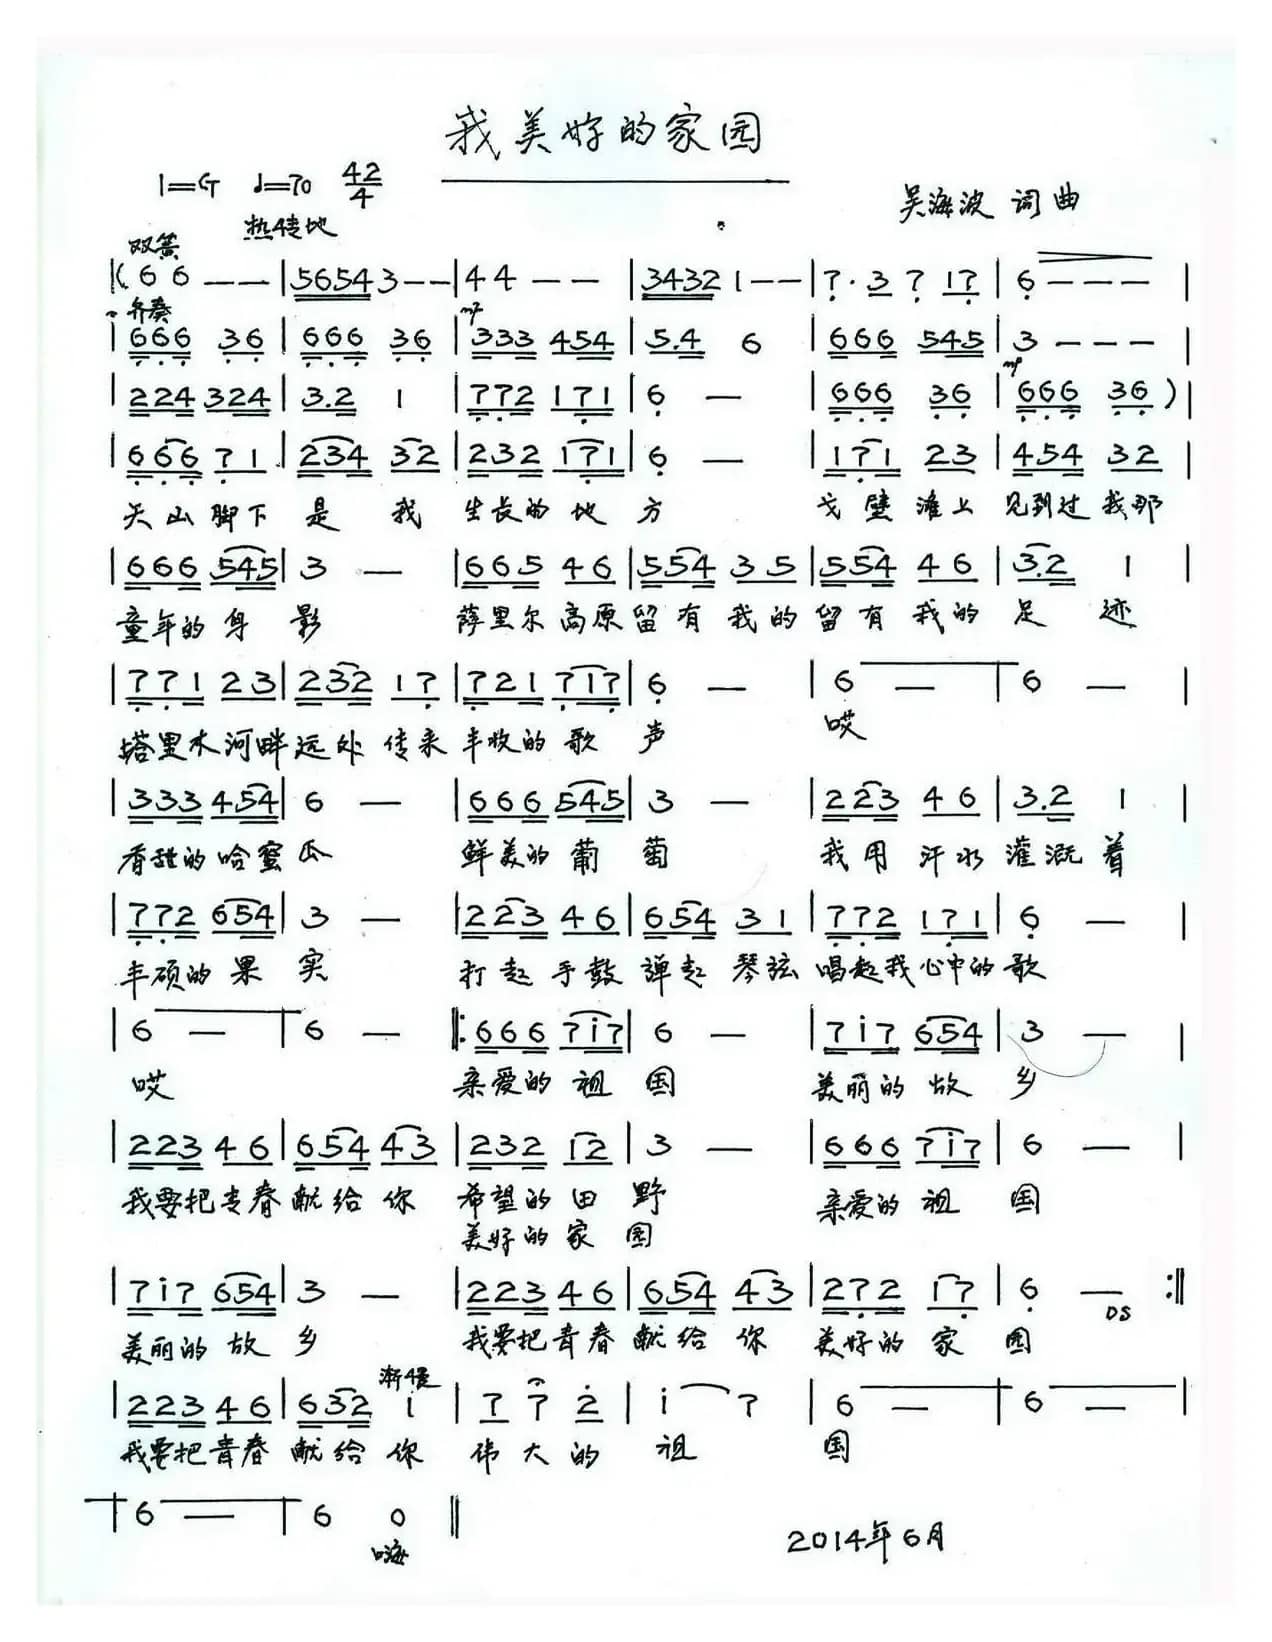 我美好的家园
1=G ♩=70 42/4
吴海波 词曲
热情地
双簧
|(6 6 — — |56543 — — |44 — — |34321 — — |7·3 7 17 |6 — — — |
齐奏 mf
|666 36 |666 36 |333 454 |5.4 6 |666 545 |3 — — — |
mf
|224 324 |3.2 1 |772 171 |6 — |666 36 |666 36 )|
|666 71 |234 32 |232 171 |6 — |171 23 |454 32 |
天山脚下 是 我 生长的地 方 戈壁滩上 见到过我那
|666 545 |3 — |665 46 |554 35 |554 46 |3.2 1 |
童年的身 影 萨里尔高原留有我的留有我的足 迹
|771 23 |232 17 |721 717 |6 — |6 — |6 — |
塔里木河畔远处传来丰收的歌 声 哎
|333 454 |6 — |666 545 |3 — |223 46 |3.2 1 |
香甜的哈蜜瓜 鲜美的葡 萄 我用汗水灌溉着
|772 654 |3 — |223 46 |654 31 |772 171 |6 — |
丰硕的果 实 打起手鼓弹起琴弦唱起我心中的歌
|6 — |6 — |:666 7i7 |6 — |7i7 654 |3 — |
哎 亲爱的祖 国 美丽的故 乡
|223 46 |654 43 |232 12 |3 — |666 7i7 |6 — |
我要把青春献给你 希望的田 野 亲爱的祖 国
美好的家 园
|7i7 654 |3 — |223 46 |654 43 |272 17 |6 — :||
DS
美丽的故 乡 我要把青春献给你 美好的家 园
渐慢
|223 46 |632 i |7 7 2 |i 7 |6 — |6 — |
我要把青春献给你 伟大的 祖 国
|6 — |6 0 ||
嗨
2014年6月